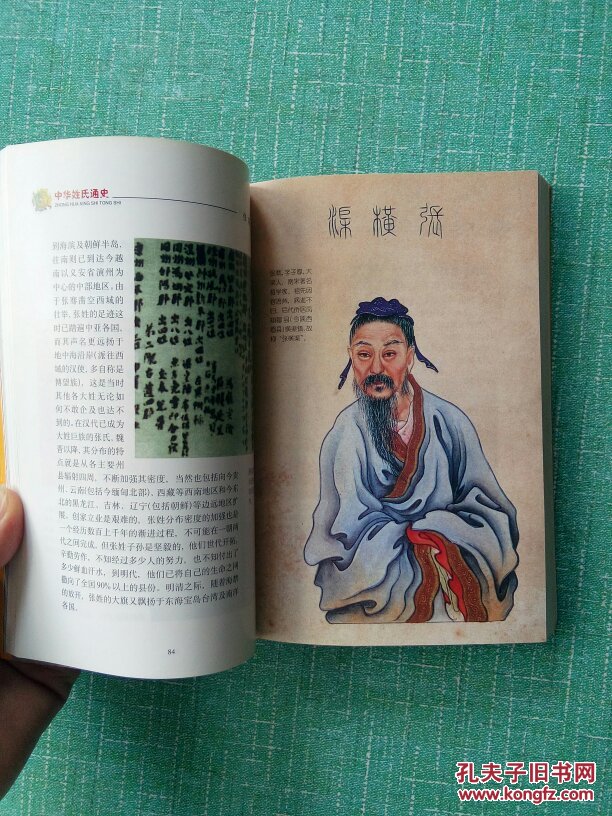 中华姓氏通史
ZHONG HUA XING SHI TONG SHI
到海滨及朝鲜半岛,
往南则已到达今越
南以又安省演州为
中心的中部地区,由
于张骞凿空西域的
壮举,张姓的足迹这
时已踏遍中亚各国。
而其声名更远扬于
地中海沿岸(派往西
域的汉使,多自称是
博望族),这是当时
其他各大姓无论如
何不敢企及也达不
到的。在汉代已成为
大姓巨族的张氏,魏
晋以降,其分布的特
点就是从各主要州
县辐射四周,不断加强其密度,当然也包括向今贵
州、云南(包括今缅甸北部)、西藏等西南地区和今东
北的黑龙江、吉林、辽宁(包括朝鲜)等边远地区扩
展。创家立业是艰难的,张姓分布密度的加强也是
一个经历数百上千年的渐进过程,不可能在一朝两
代之间完成。但张姓子孙是坚毅的,他们世代开拓,
辛勤劳作,不知经过多少人的努力,也不知付出了
多少鲜血汗水,到明代,他们已将自己的生命之网
撒向了全国90%以上的县份。明清之际,随着海禁
的放开,张姓的大旗又飘扬于东海宝岛台湾及南洋
各国。
84
張橫渠
张载,字子厚,大
孔夫子旧书网
www.kongfz.com